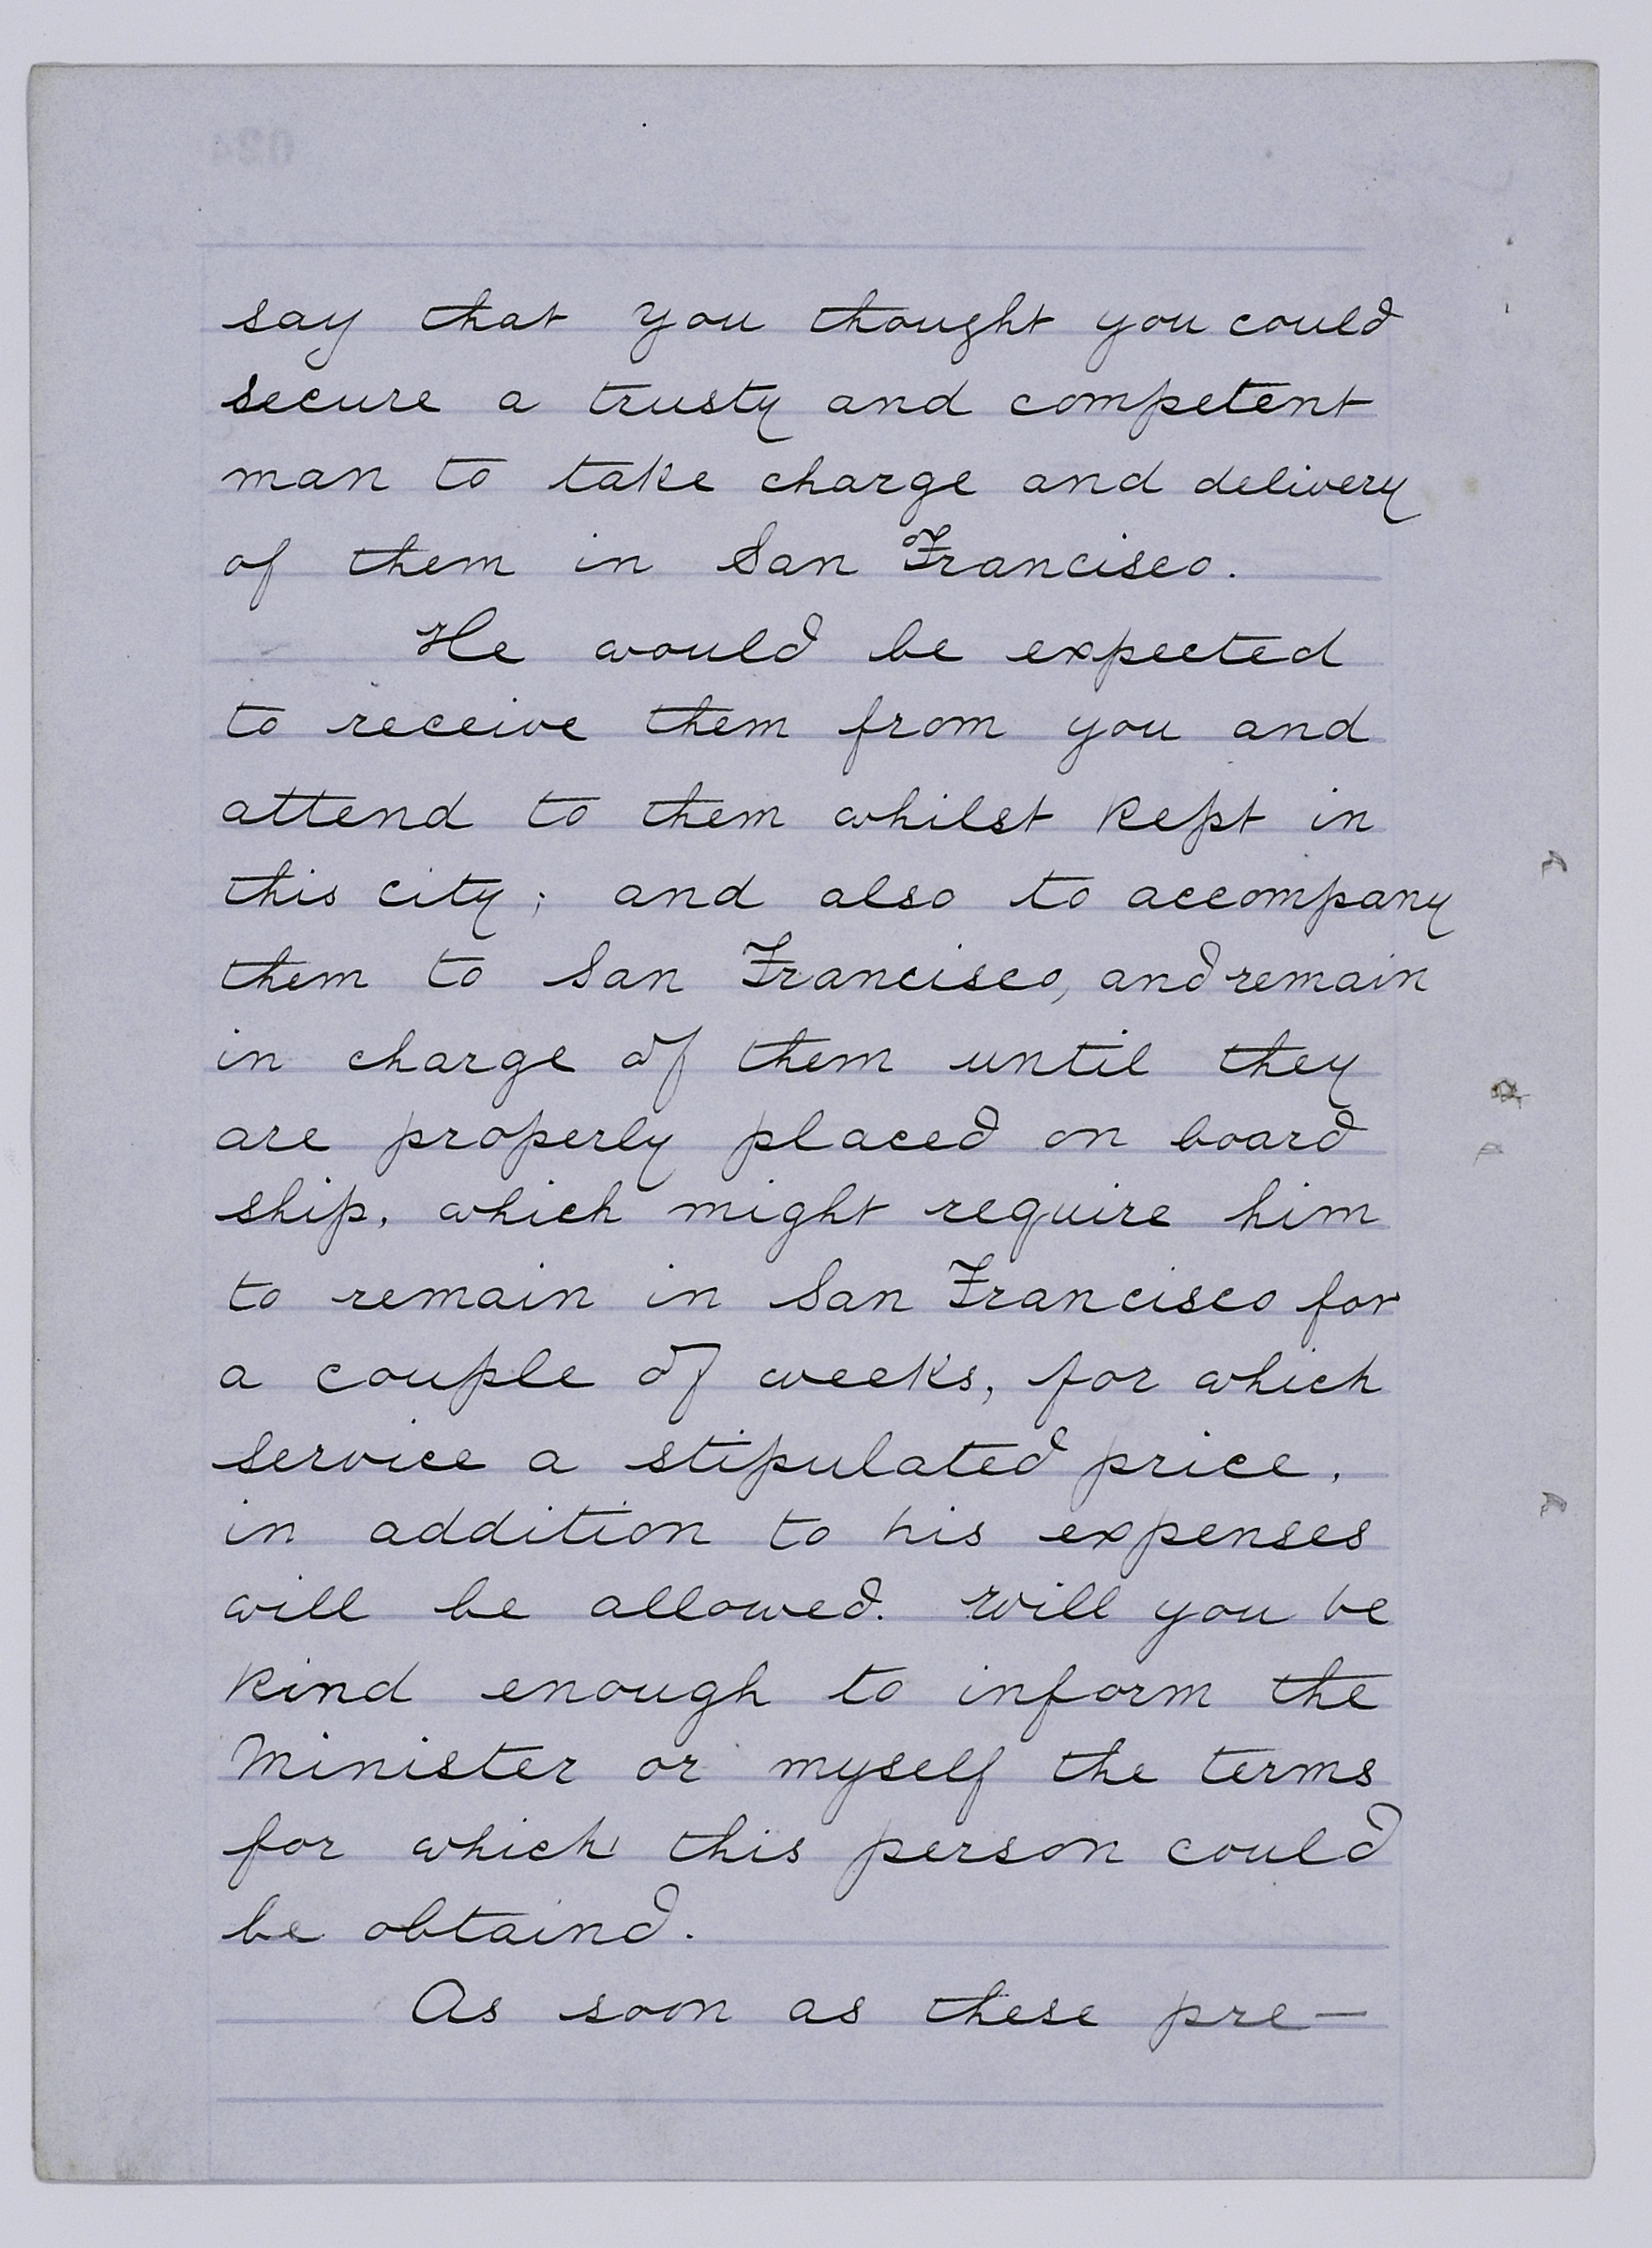 say that you thought you could
secure a trusty and competent
man to take charge and delivery
of them in San Francisco.
He would be expected
to receive them from you and
attend to them whilst kept in
this city; and also to accompany
them to San Francisco, and remain
in charge of them until they
are properly placed on board
ship, which might require him
to remain in San Francisco for
a couple of weeks, for which
service a stipulated price,
in addition to his expenses
will be allowed. Will you be
kind enough to inform the
Minister or myself the terms
for which this person could
be obtaind.
As soon as these pre—